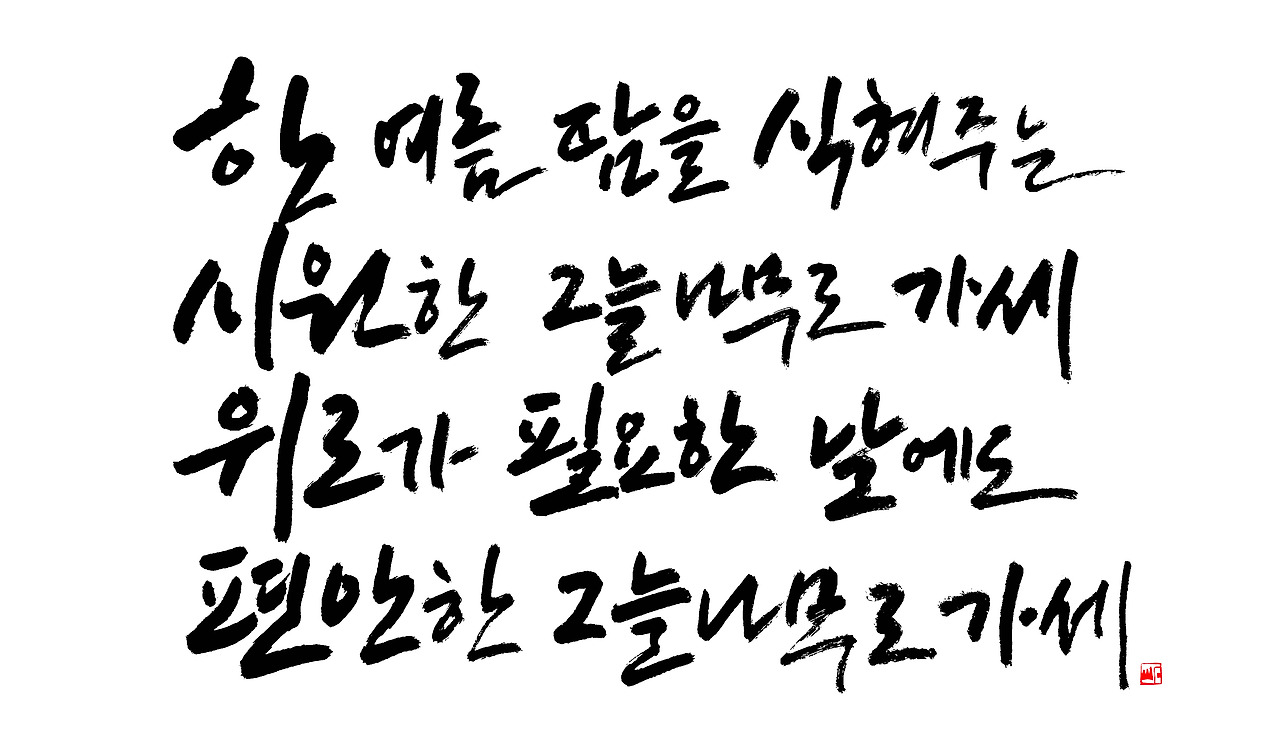 한 여름 땀을 식혀주는
시원한 그늘나무로 가세
위로가 필요한 날에도
편안한 그늘나무로 가세